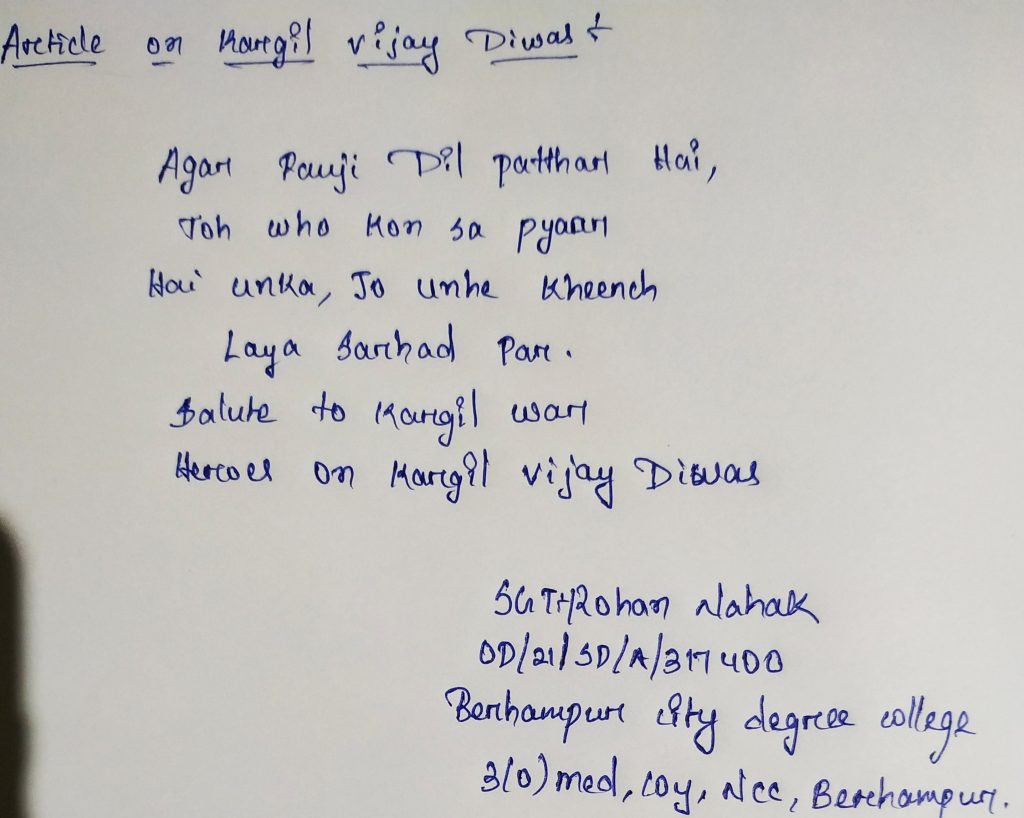 Article on Kargil vijay Diwas :
Agar Fauji Dil patthar Hai,
Toh who Kon sa pyaar
Hai unka, Jo unhe Kheench
Laya Sarhad Par.
Salute to Kargil war
Heroes on Kargil vijay Diwas
SGT Rohan Nahak
OD/21/SD/A/317400
Berhampur city degree college
3(O) med, coy, Ncc, Berhampur.